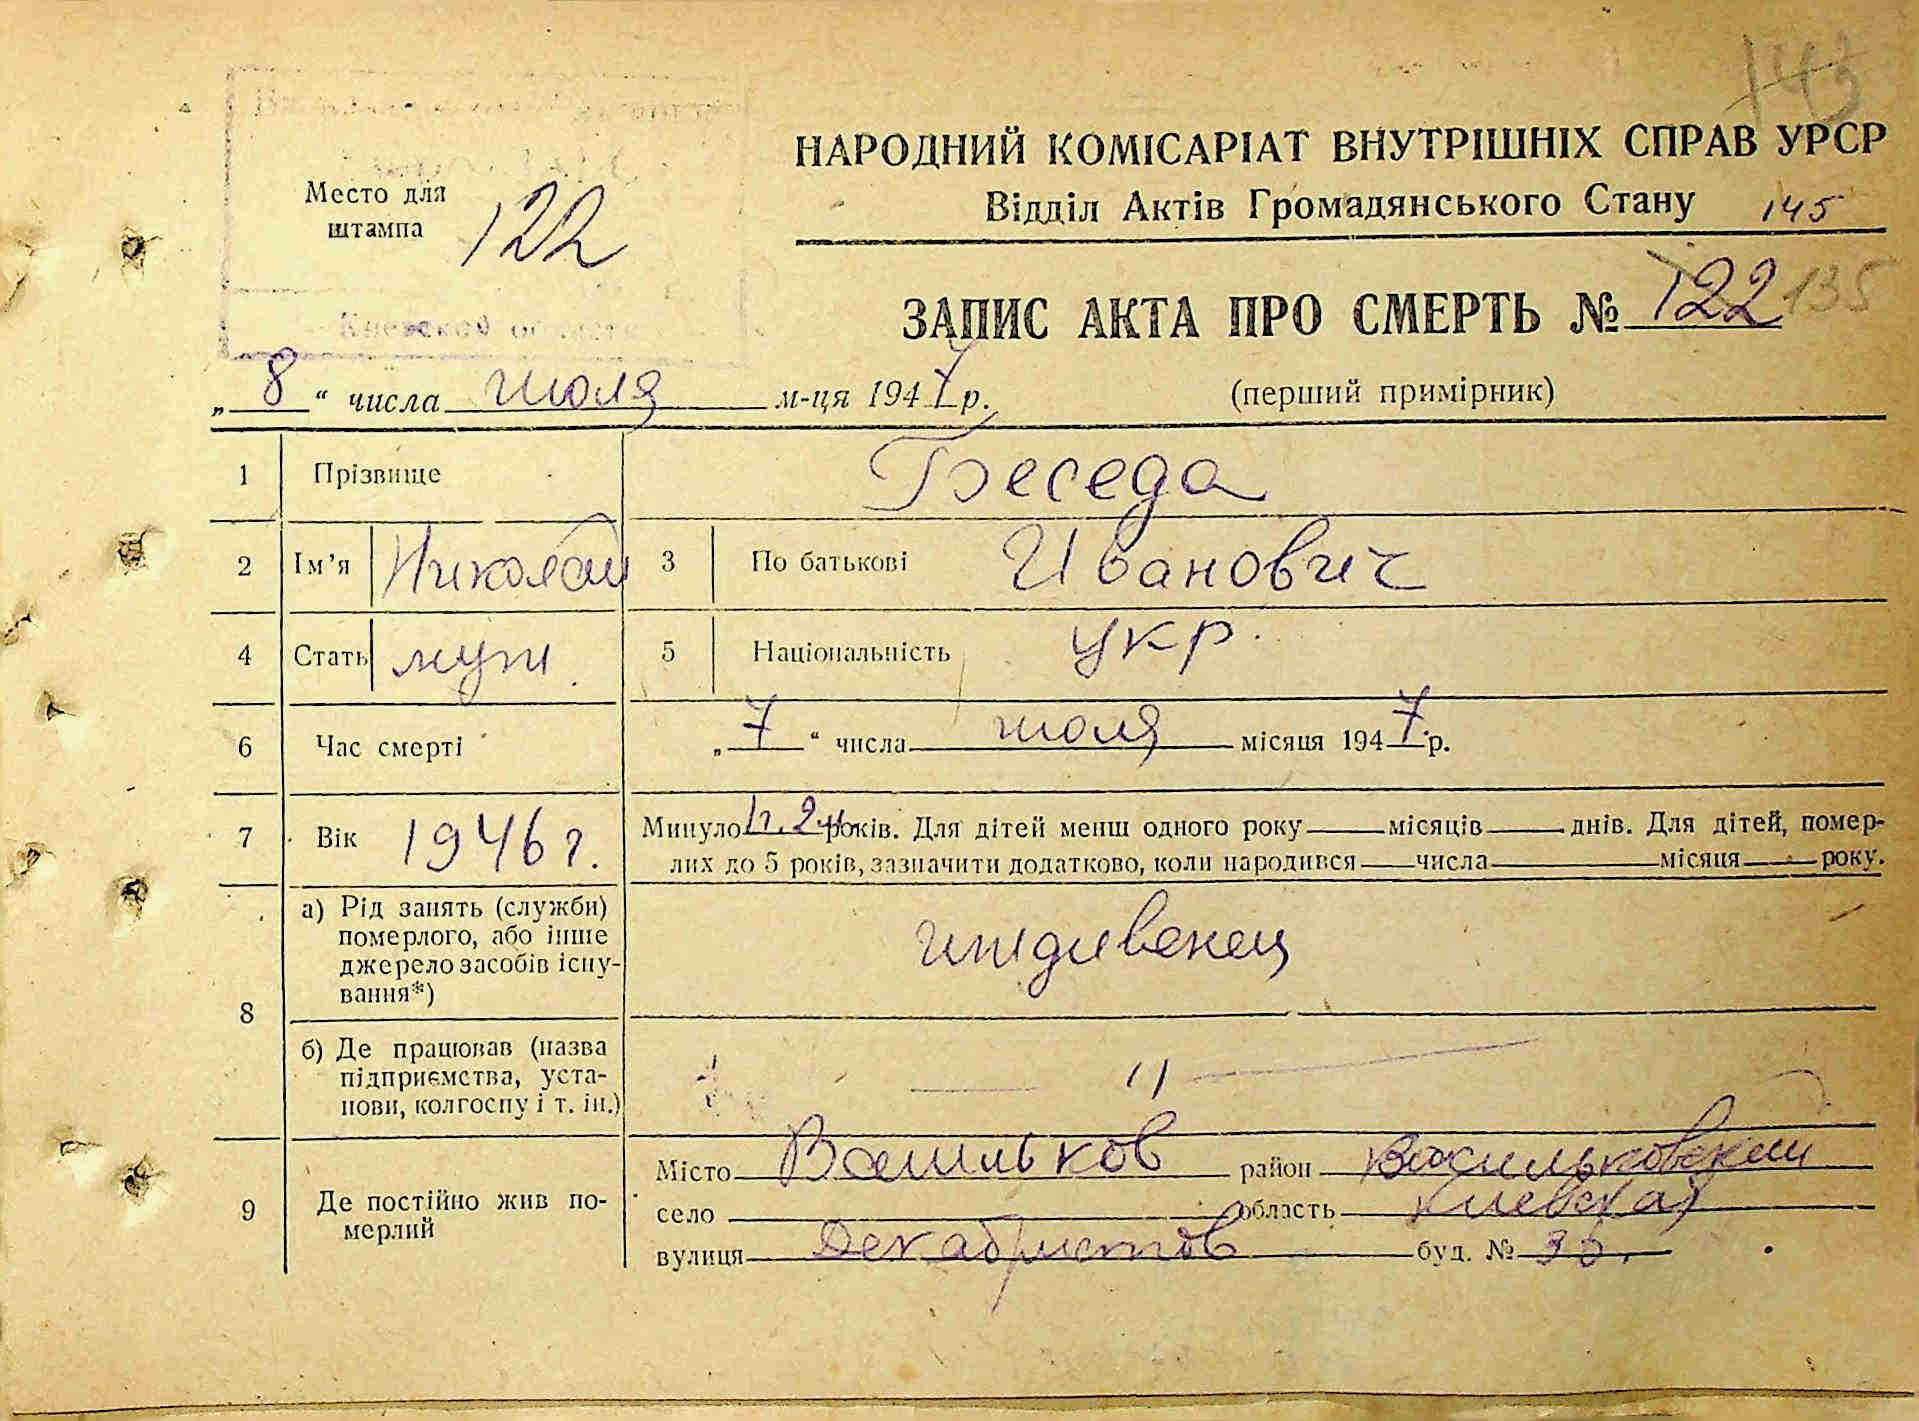 143
НАРОДНИЙ КОМІСАРІАТ ВНУТРІШНІХ СПРАВ УРСР
Відділ Актів Громадянського Стану 145
Место для
штампа
122
Киевской области
ЗАПИС АКТА ПРО СМЕРТЬ № 122 135
„8“ числа июля м-ця 1947 р.
(перший примірник)
1 Прізвище Беседа
2 Ім’я Николай 3 По батькові Иванович
4 Стать муж 5 Національність укр.
6 Час смерті „7“ числа июля місяця 1947 р.
7 Вік 1946 г. Минуло 1 г. 2 м. років. Для дітей менш одного року місяців днів. Для дітей, помер-
лих до 5 років, зазначити додатково, коли народився числа місяця року.
8 а) Рід занять (служби)
померлого, або інше
джерело засобів існу-
вання*)
иждивенец
б) Де працював (назва
підприємства, уста-
нови, колгоспу і т. ін.)
— 〃 —
9 Де постійно жив по-
мерлий
Місто Васильков район Васильковский
село область Киевская
вулиця Декабристов буд. №